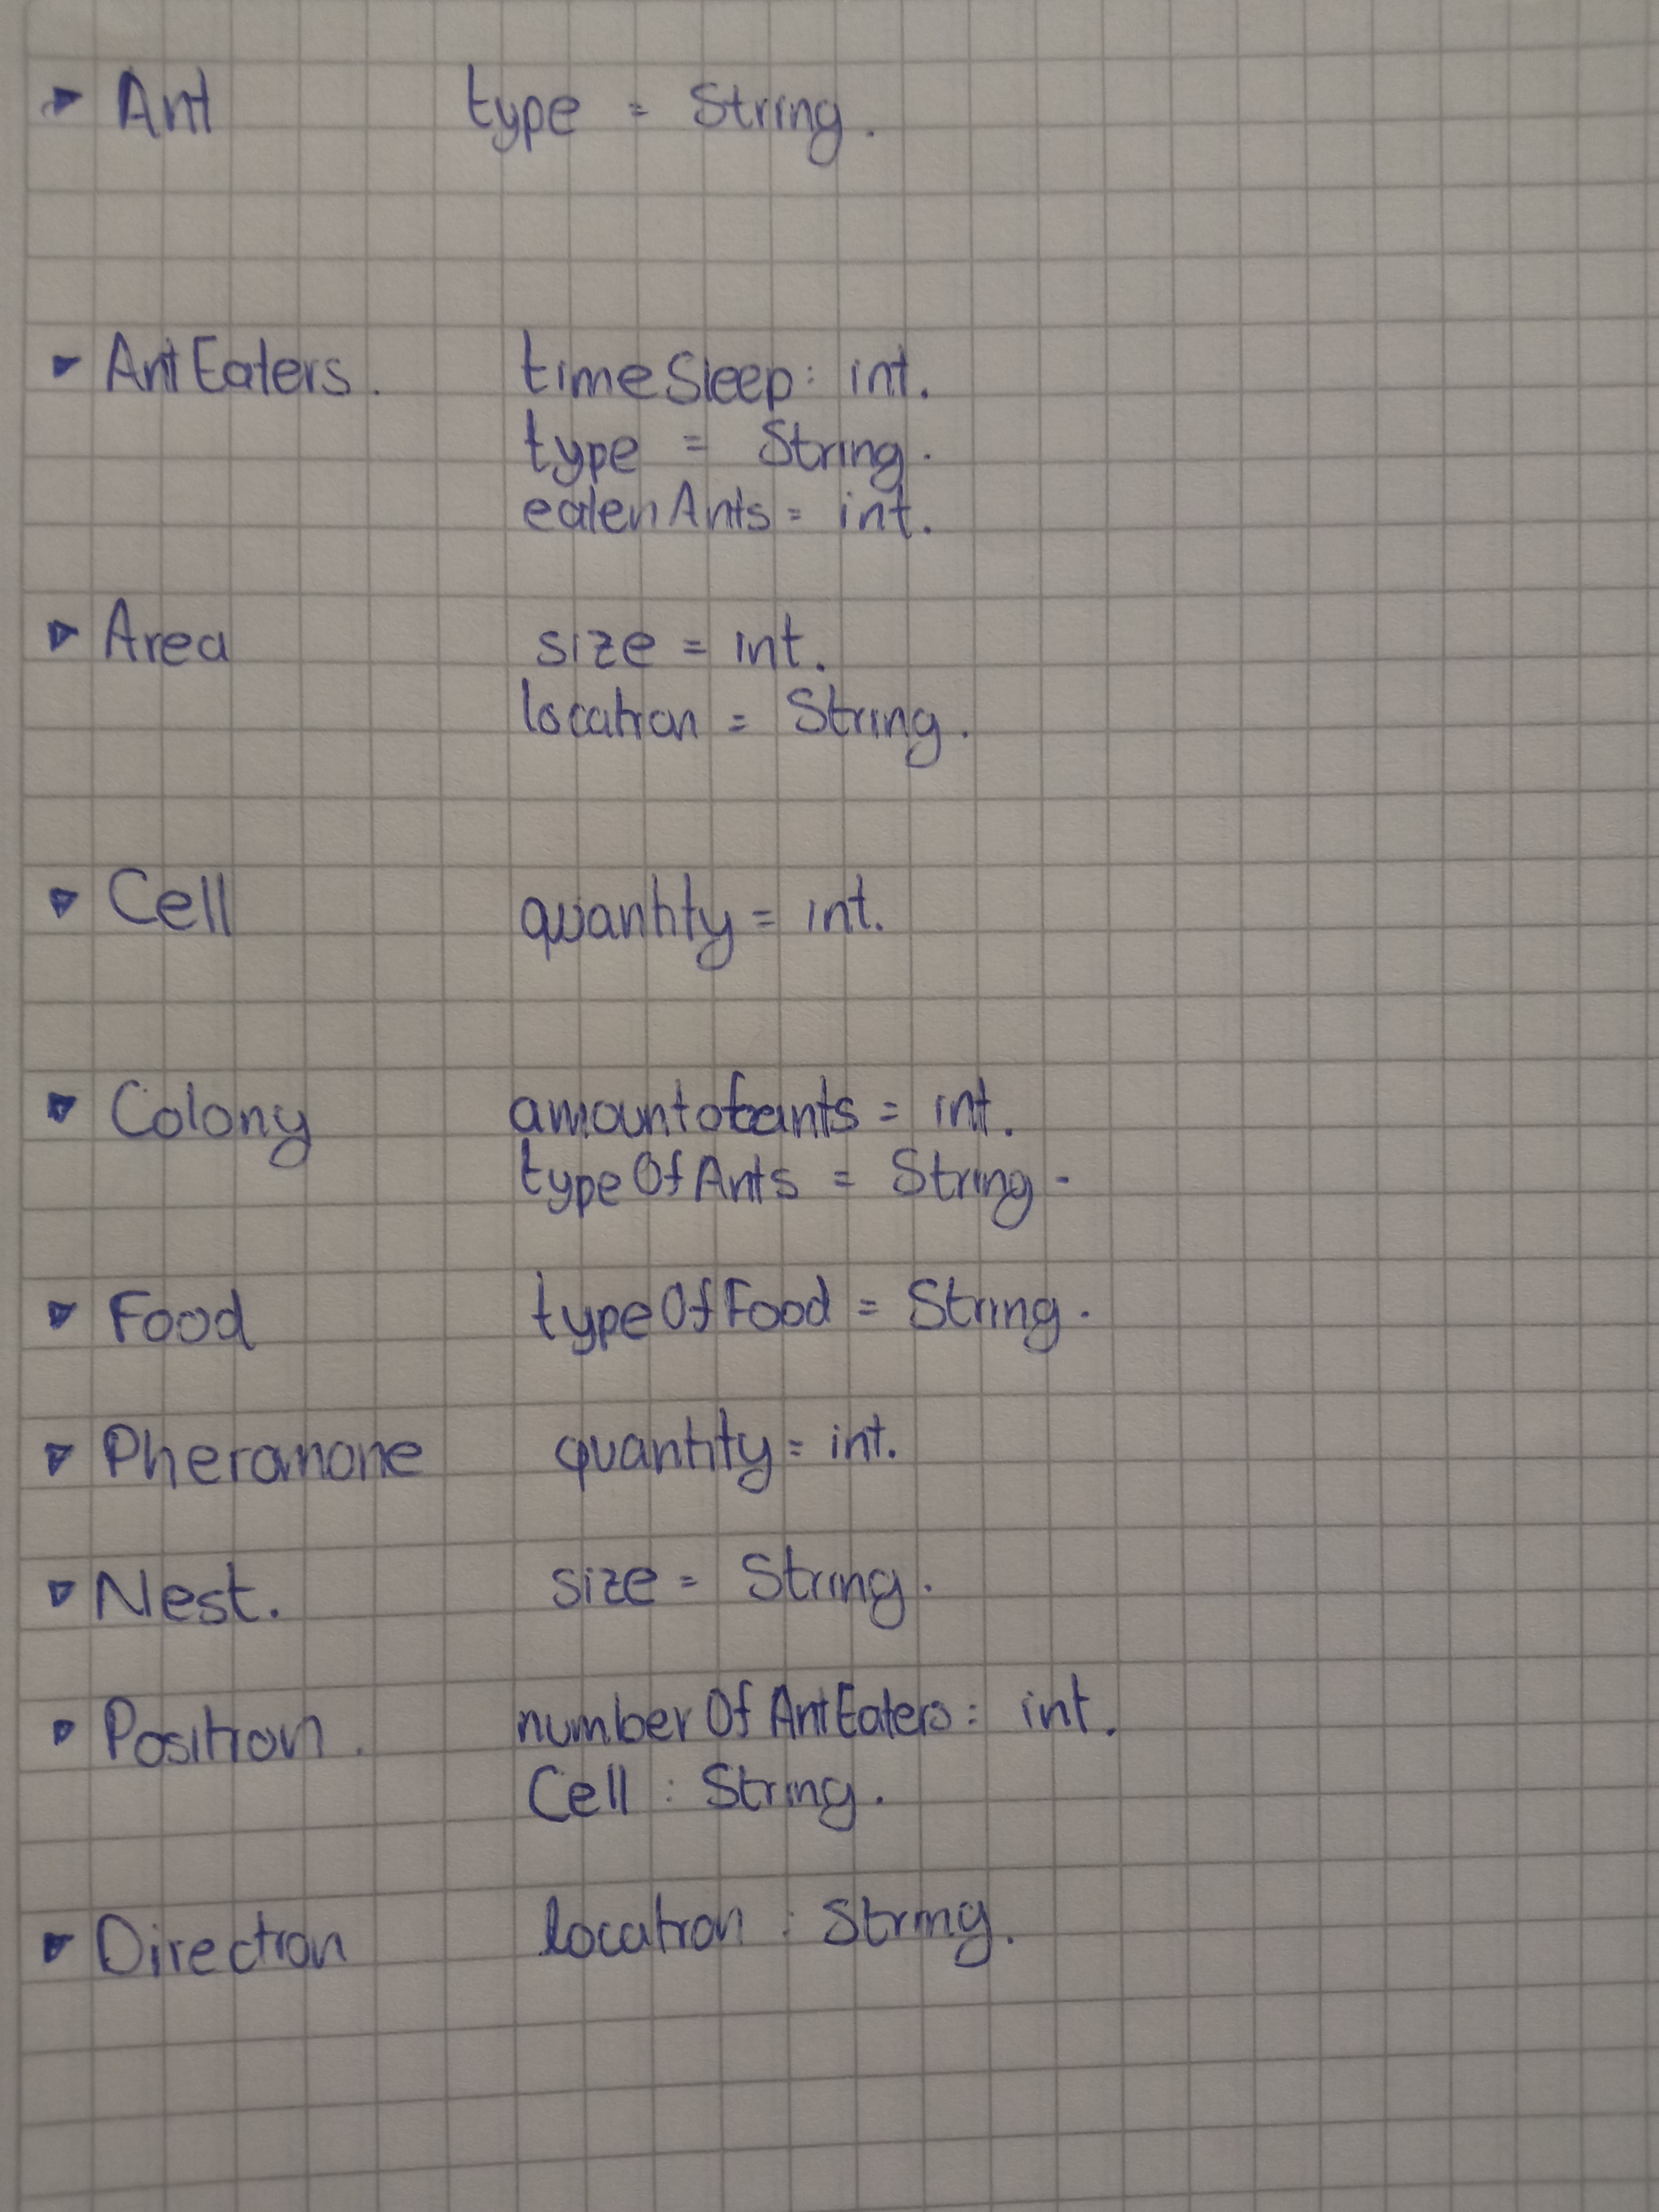 ▸ Ant type = String.
▸ AntEaters. timeSleep: int.
type = String.
eatenAnts = int.
▸ Area size = int.
location = String.
▸ Cell quantity = int.
▸ Colony = int.
typeOfAnts = String.
▸ Food typeOfFood = String.
▸ Pheramone quantity = int.
▸ Nest. size = String.
▸ Position. numberOfAntEaters: int.
Cell : String.
▸ Direction location : String.